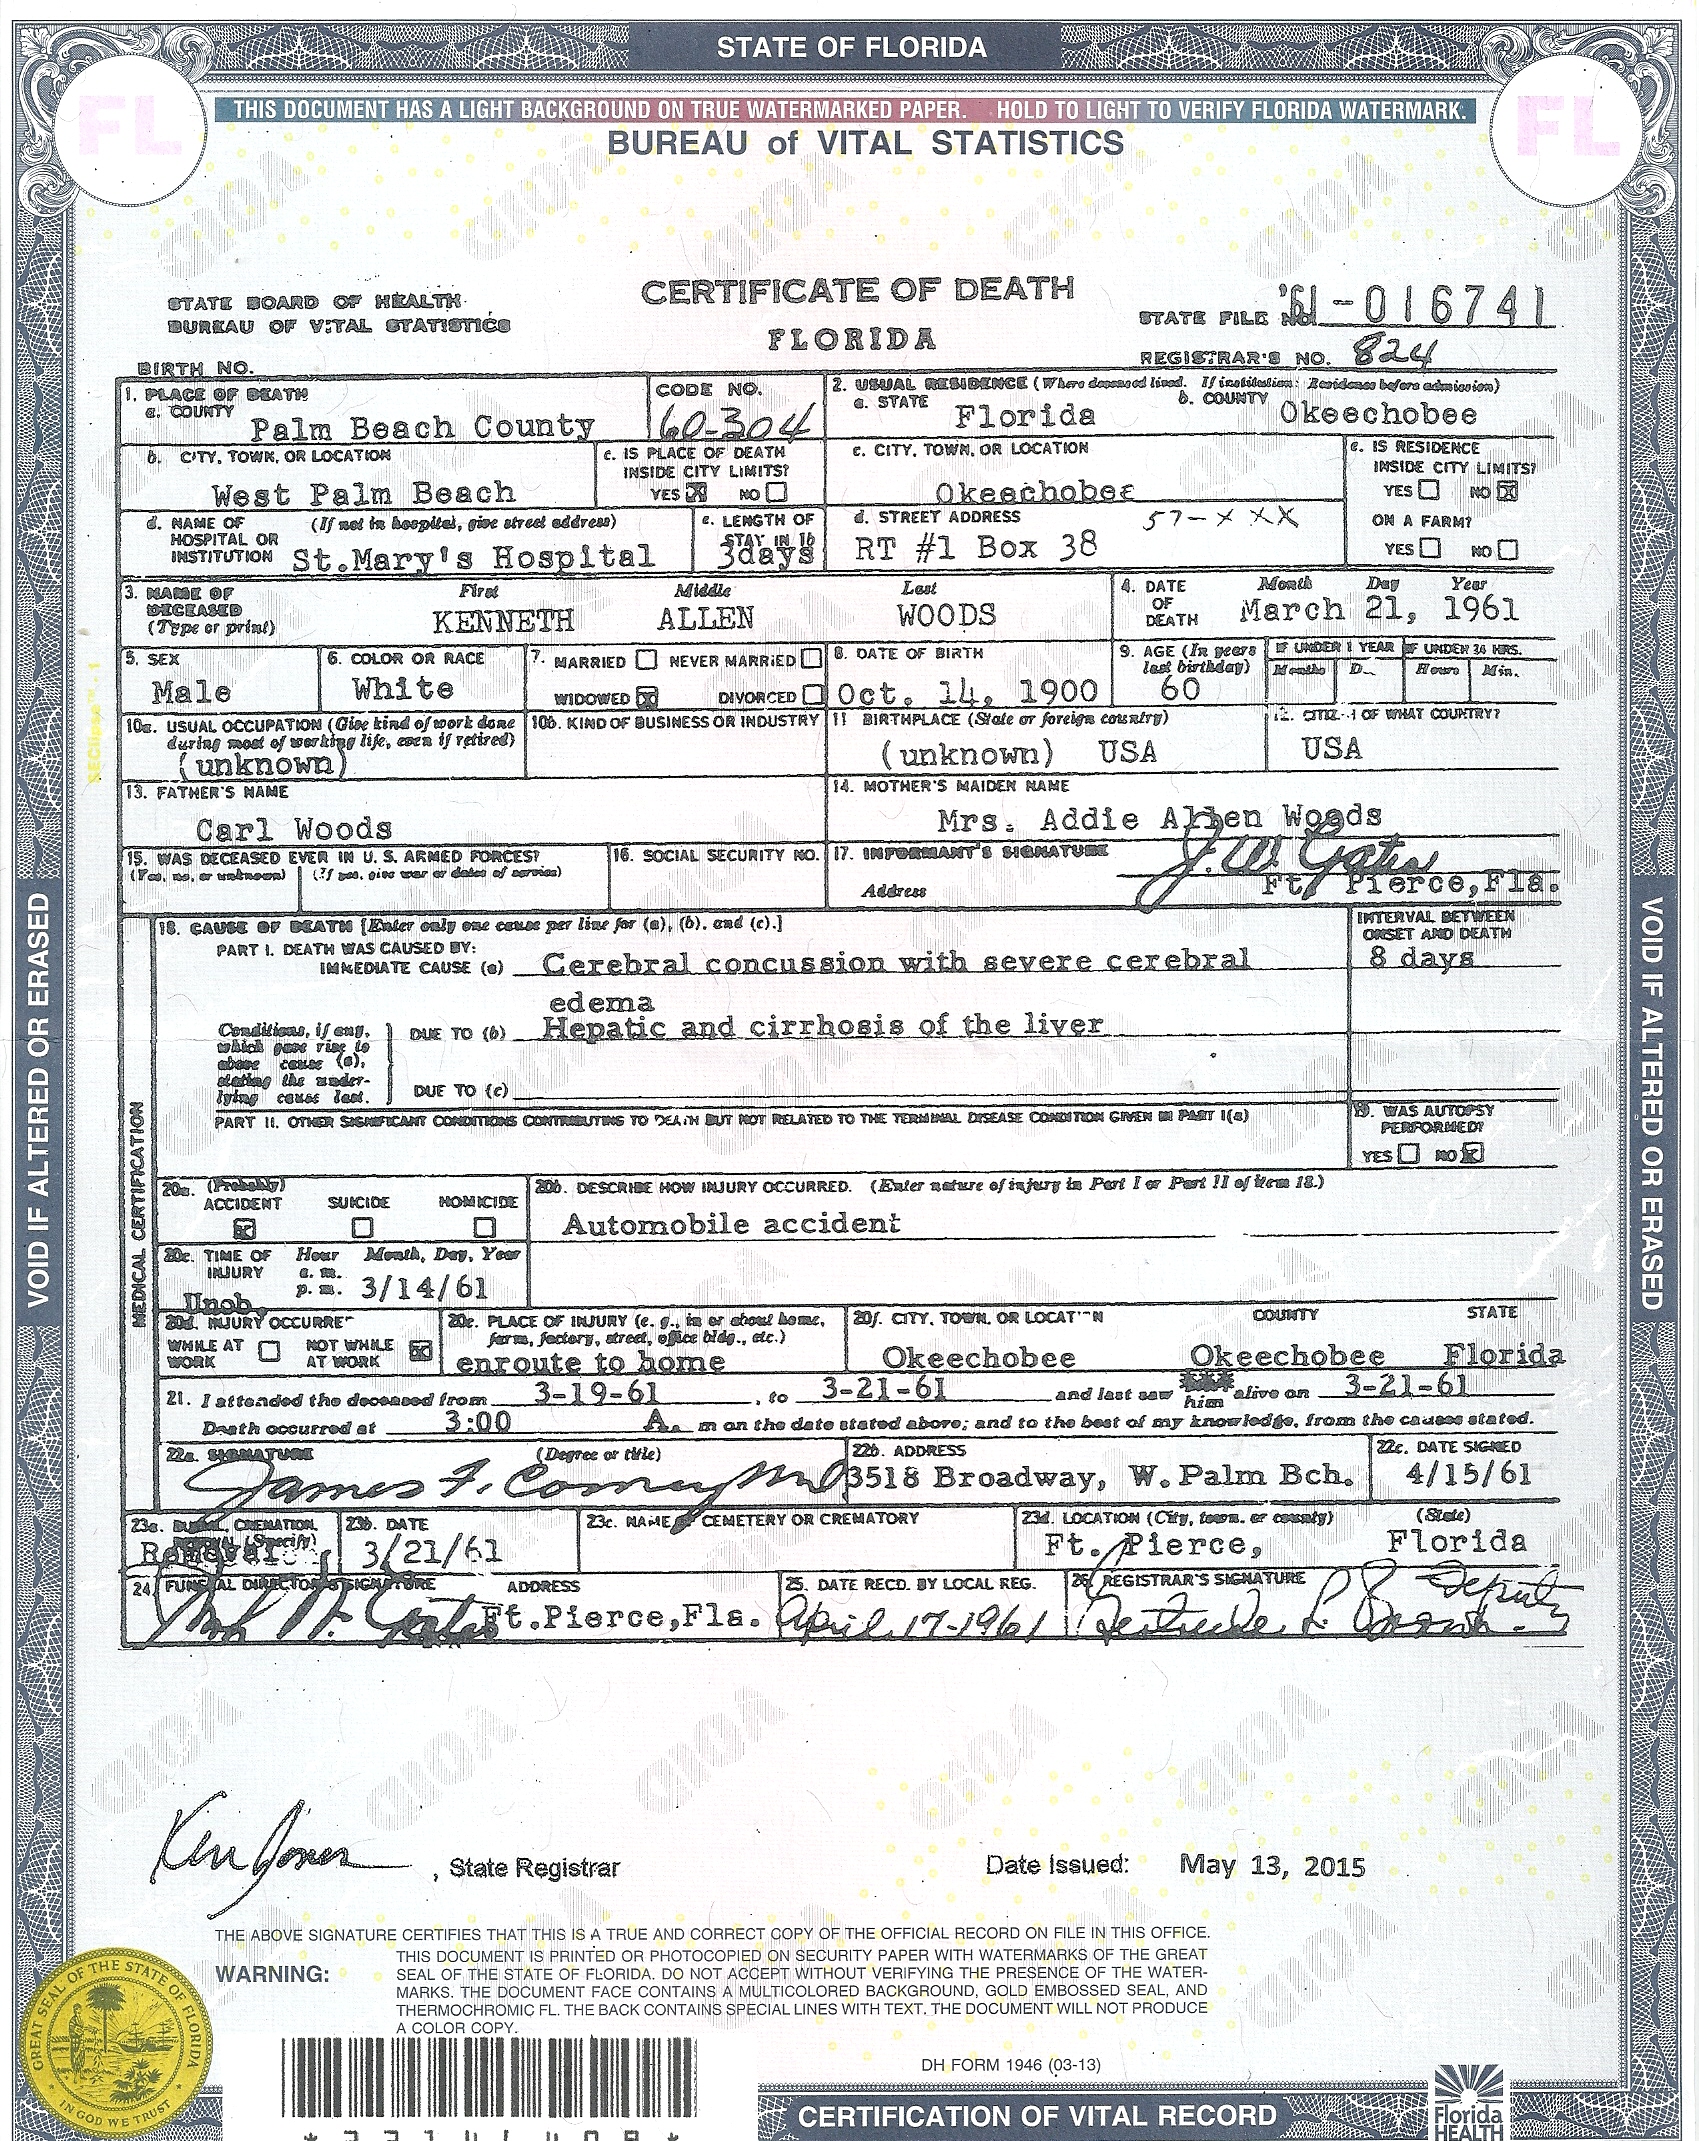 STATE OF FLORIDA
FL
FL
THIS DOCUMENT HAS A LIGHT BACKGROUND ON TRUE WATERMARKED PAPER. HOLD TO LIGHT TO VERIFY FLORIDA WATERMARK.
BUREAU of VITAL STATISTICS
STATE BOARD OF HEALTH
BUREAU OF VITAL STATISTICS
CERTIFICATE OF DEATH
FLORIDA
STATE FILE NO. '61-016741
REGISTRAR'S NO. 824
BIRTH NO.
1. PLACE OF DEATH
a. COUNTY
Palm Beach County
CODE NO.
60-304
2. USUAL RESIDENCE (Where deceased lived. If institution: Residence before admission)
a. STATE Florida
b. COUNTY Okeechobee
b. CITY, TOWN, OR LOCATION
West Palm Beach
c. IS PLACE OF DEATH
INSIDE CITY LIMITS?
YES NO
c. CITY, TOWN, OR LOCATION
Okeechobee
e. IS RESIDENCE
INSIDE CITY LIMITS?
YES NO
d. NAME OF (If not in hospital, give street address)
HOSPITAL OR
INSTITUTION St.Mary's Hospital
e. LENGTH OF
STAY IN 1b
3days
d. STREET ADDRESS 57-XXX
RT #1 Box 38
ON A FARM?
YES NO
3. NAME OF
DECEASED
(Type or print)
First Middle Last
KENNETH ALLEN WOODS
4. DATE
OF
DEATH
Month Day Year
March 21, 1961
5. SEX
Male
6. COLOR OR RACE
White
7. MARRIED NEVER MARRIED
WIDOWED DIVORCED
8. DATE OF BIRTH
Oct. 14, 1900
9. AGE (In years
last birthday)
60
IF UNDER 1 YEAR
Months
IF UNDER 24 HRS.
Hours Min.
10a. USUAL OCCUPATION (Give kind of work done
during most of working life, even if retired)
(unknown)
10b. KIND OF BUSINESS OR INDUSTRY
11 BIRTHPLACE (State or foreign country)
(unknown) USA
OF WHAT COUNTRY?
USA
13. FATHER'S NAME
Carl Woods
14. MOTHER'S MAIDEN NAME
Mrs. Addie Allen Woods
15. WAS DECEASED EVER IN U. S. ARMED FORCES?
(Yes, no, or unknown) (If yes, give war or dates of service)
16. SOCIAL SECURITY NO.
17. INFORMANT'S SIGNATURE
J. W. Gates
Address Ft. Pierce, Fla.
MEDICAL CERTIFICATION
18. CAUSE OF DEATH [Enter only one cause per line for (a), (b), and (c).]
PART I. DEATH WAS CAUSED BY:
IMMEDIATE CAUSE (a) Cerebral concussion with severe cerebral
edema
INTERVAL BETWEEN
ONSET AND DEATH
8 days
Conditions, if any,
which gave rise to
above cause (a),
stating the under-
lying cause last.
DUE TO (b) Hepatic and cirrhosis of the liver
DUE TO (c)
PART II. OTHER SIGNIFICANT CONDITIONS CONTRIBUTING TO DEATH BUT NOT RELATED TO THE TERMINAL DISEASE CONDITION GIVEN IN PART I(a)
19. WAS AUTOPSY
PERFORMED?
YES NO
20a. (Probably)
ACCIDENT SUICIDE HOMICIDE
20b. DESCRIBE HOW INJURY OCCURRED. (Enter nature of injury in Part I or Part II of item 18.)
Automobile accident
20c. TIME OF Hour Month, Day, Year
INJURY a. m.
p. m. 3/14/61
Unob.
20d. INJURY OCCURRE
WHILE AT WORK NOT WHILE AT WORK
20e. PLACE OF INJURY (e. g., in or about home,
farm, factory, street, office bldg., etc.)
enroute to home
20f. CITY, TOWN, OR LOCAT N COUNTY STATE
Okeechobee Okeechobee Florida
21. I attended the deceased from 3-19-61, to 3-21-61 and last saw him alive on 3-21-61
Death occurred at 3:00 A. m on the date stated above; and to the best of my knowledge, from the causes stated.
22a. SIGNATURE (Degree or title)
James F. MD
22b. ADDRESS
3518 Broadway, W. Palm Bch.
22c. DATE SIGNED
4/15/61
23a. BURIAL, CREMATION,
REMOVAL (Specify)
Removal
23b. DATE
3/21/61
23c. NAME OF CEMETERY OR CREMATORY
23d. LOCATION (City, town, or county) (State)
Ft. Pierce, Florida
24. FUNERAL DIRECTOR'S SIGNATURE ADDRESS
Gates Ft.Pierce,Fla.
25. DATE RECD. BY LOCAL REG.
April 17-1961
26. REGISTRAR'S SIGNATURE
Gertrude L. Deputy
VOID IF ALTERED OR ERASED
VOID IF ALTERED OR ERASED
Ken Jones, State Registrar
Date Issued: May 13, 2015
THE ABOVE SIGNATURE CERTIFIES THAT THIS IS A TRUE AND CORRECT COPY OF THE OFFICIAL RECORD ON FILE IN THIS OFFICE.
WARNING:
THIS DOCUMENT IS PRINTED OR PHOTOCOPIED ON SECURITY PAPER WITH WATERMARKS OF THE GREAT
SEAL OF THE STATE OF FLORIDA. DO NOT ACCEPT WITHOUT VERIFYING THE PRESENCE OF THE WATER-
MARKS. THE DOCUMENT FACE CONTAINS A MULTICOLORED BACKGROUND, GOLD EMBOSSED SEAL, AND
THERMOCHROMIC FL. THE BACK CONTAINS SPECIAL LINES WITH TEXT. THE DOCUMENT WILL NOT PRODUCE
A COLOR COPY.
GREAT SEAL OF THE STATE OF FLORIDA
IN GOD WE TRUST
DH FORM 1946 (03-13)
CERTIFICATION OF VITAL RECORD
Florida
HEALTH